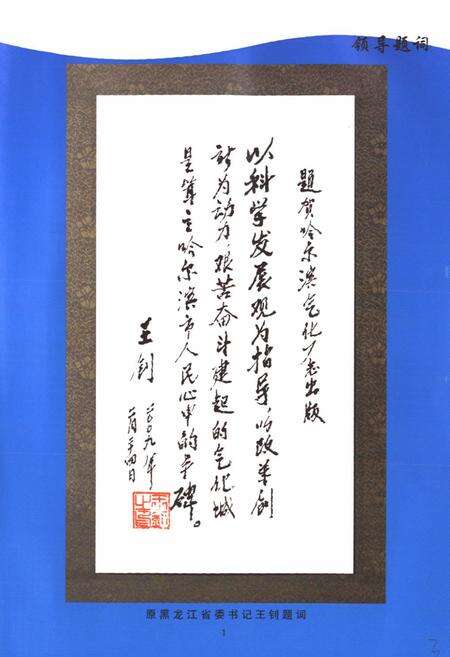 领导题词
题贺哈尔滨气化厂志出版
以科学发展观为指导，以改革创
新为动力，艰苦奋斗建起的气化城
是耸立哈尔滨市人民心中的丰碑。
王钊
二〇〇九年
二月二十四日
原黑龙江省委书记王钊题词
1